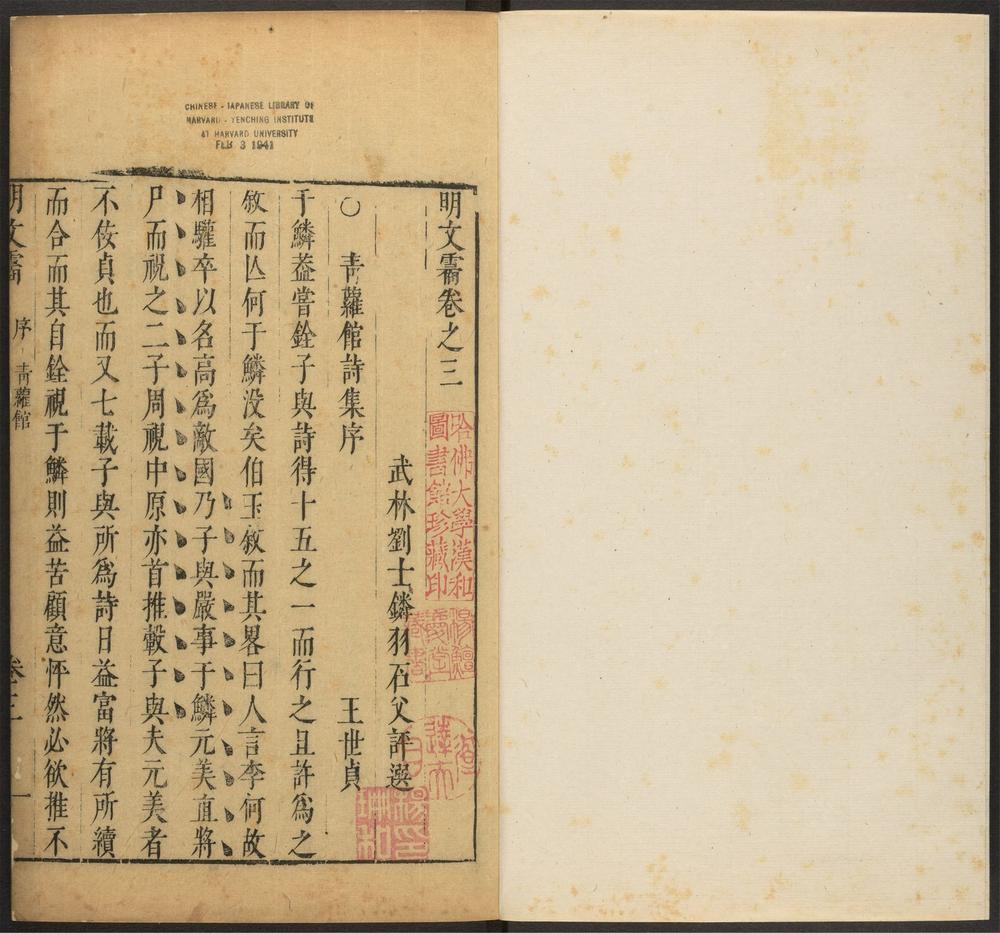 CHINESE - JAPANESE LIBRARY OF
HARVARD - YENCHING INSTITUTE
AT HARVARD UNIVERSITY
FEB 3 1941
明文霱卷之三
哈佛大學漢和
圖書館珍藏印
武林劉士鏻羽石父評選
○　靑蘿館詩集序　王世貞
于鱗葢嘗銓子與詩得十五之一而行之且許爲之
敘而亾何于鱗没矣伯玉敘而其畧曰人言李何故
相驩卒以名高爲敵國乃子與嚴事于鱗元美直將
尸而祝之二子周視中原亦首推轂子與夫元美者
不佞貞也而又七載子與所爲詩日益富將有所續
而合而其自銓視于鱗則益苦顧意怦然必欲推不
明文霱　序　靑蘿館　卷三　一